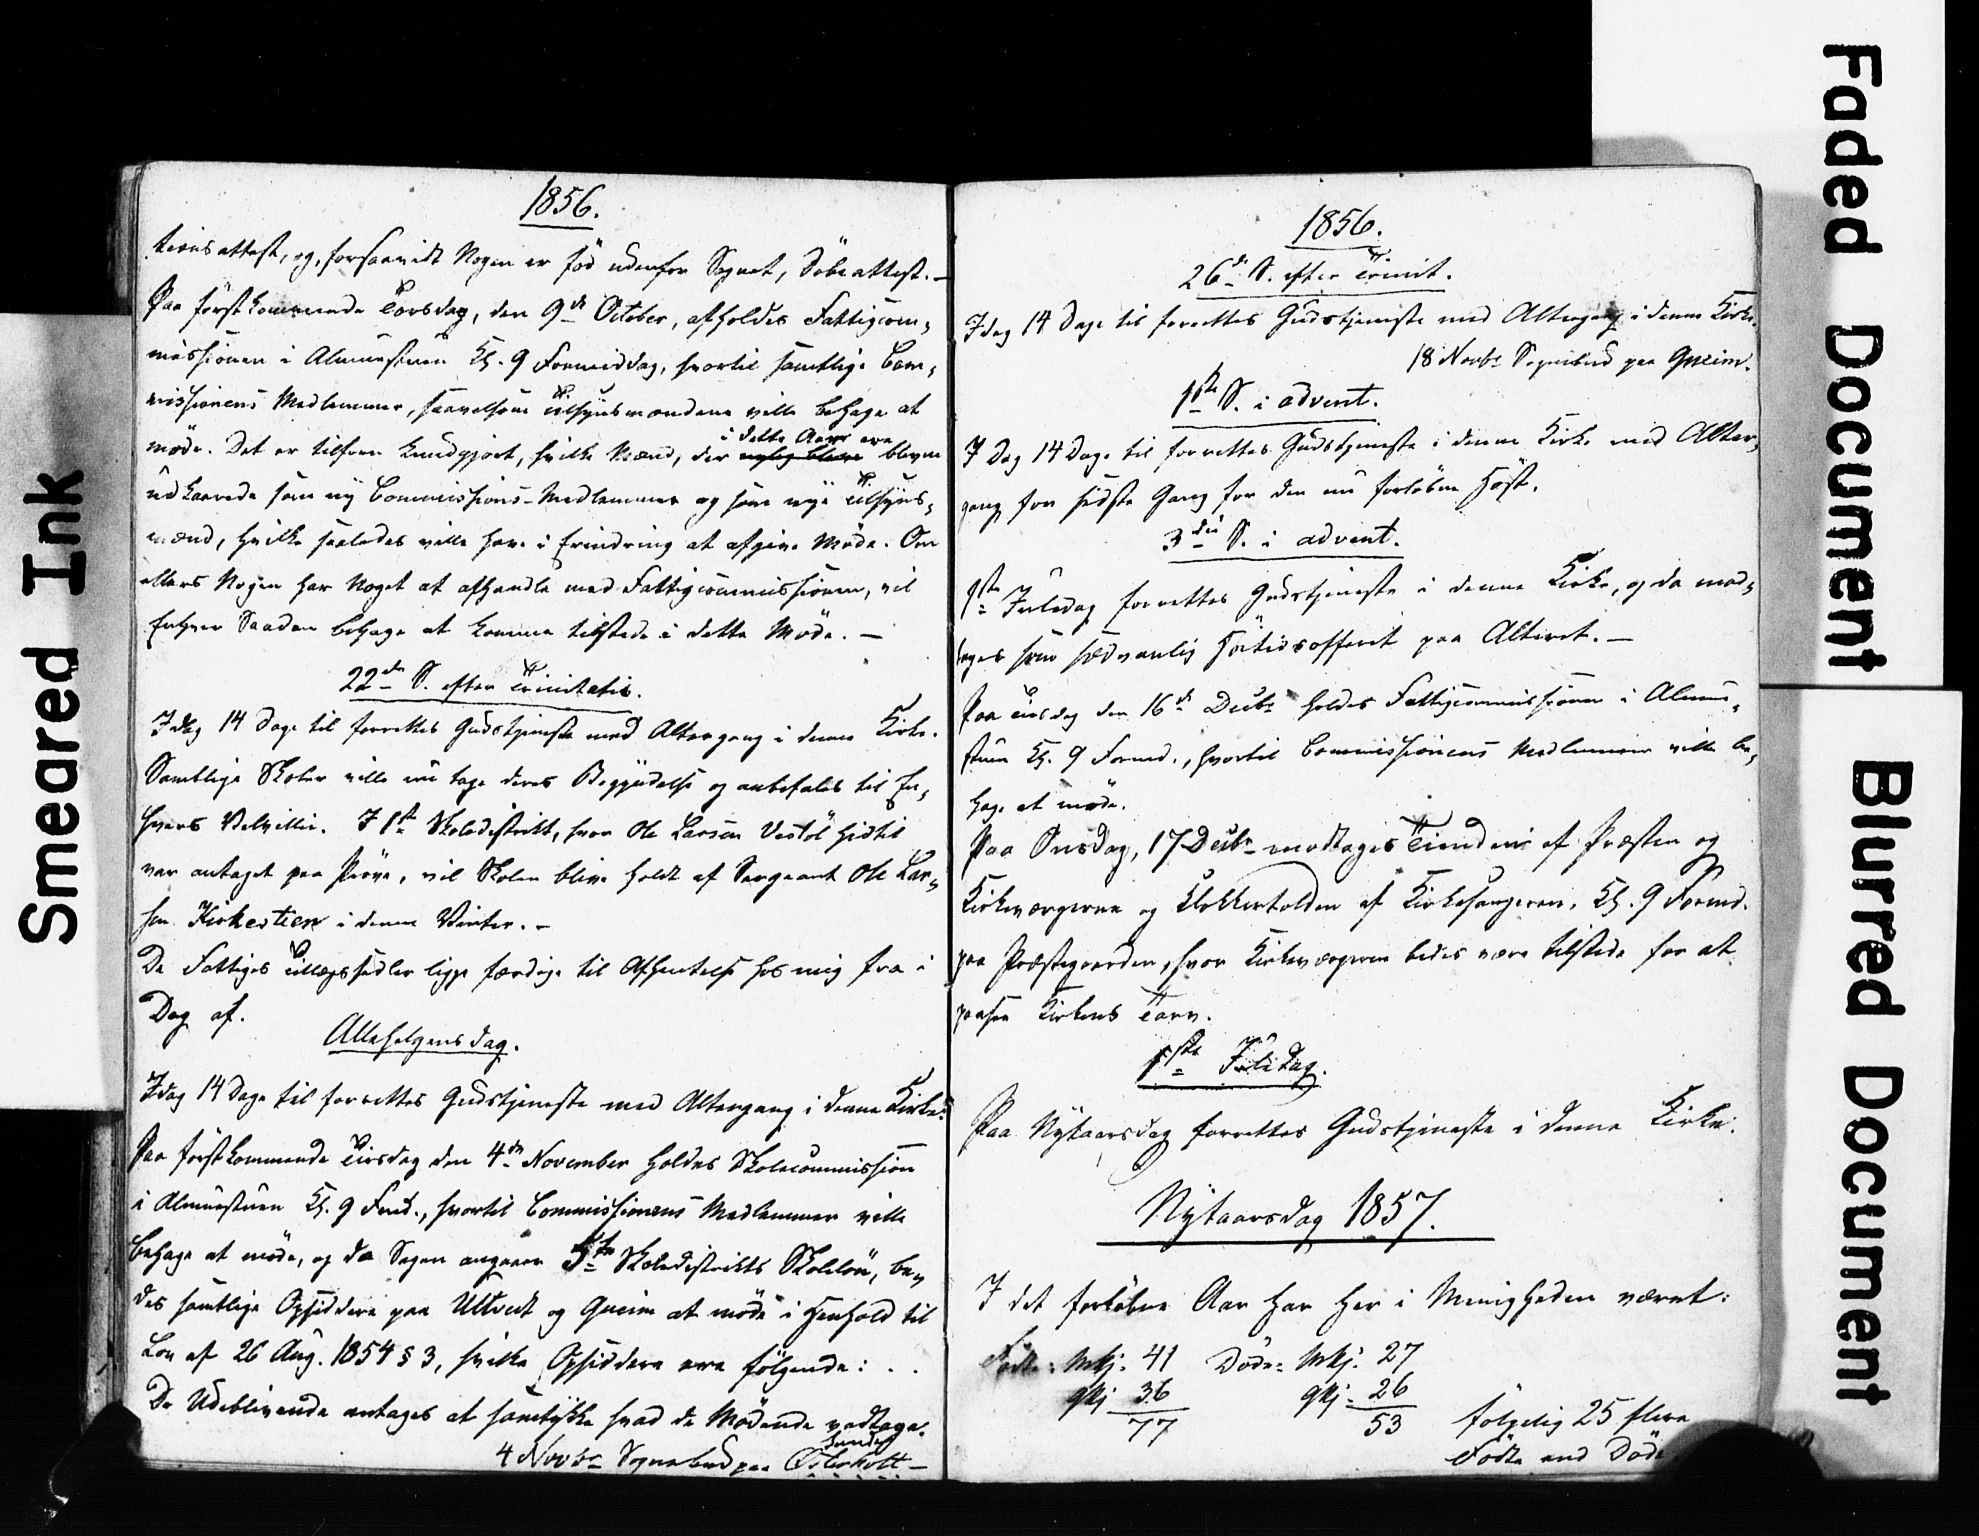 1856.
tionsattest, og, forsaavidt Nogen er föd udenfor Sognet, Döbeattest. —
Paa förstkommende Torsdag, den 9de October, afholdes Fattigcom-
missionen i Almuestuen Kl. 9 Formiddag, hvortil samtlige Com-
missionens Medlemmer, saavelsom Tilsynsmændene ville behage at
i dette Aar ere
möde. Det er tilforn kundgjort, hvilke Mænd, der nylig bleve blevne
udkaarede som ny Commissions-Medlemmer og som nye Tilsyns-
mænd, hvilke saaledes ville have i Erindring at afgive Möde. Om
ellers Nogen har Noget at afhandle med Fattigcommissionen, vil
Enhver Saadan behage at komme tilstede i dette Möde. —
22de S. efter Trinitatis.
Idag 14 Dage til forrettes Gudstjeneste med Altergang i denne Kirke.
Samtlige Skoler ville nu tage deres Begyndelse og anbefales til En-
hvers Velvillie. I 1ste Skoledistrikt, hvor Ole Larsen Vestöl hidtil
var antaget paa Pröve, vil Skolen blive holdt af Sergeant Ole Lar-
sen Kirkestien i denne Vinter. —
De Fattiges Tillægssedler ligge færdige til Afhentelse hos mig fra i
Dag af.
Allehelgensdag.
Idag 14 Dage til forrettes Gudstjeneste med Altergang i denne Kirke.
Paa förstkommende Tirsdag den 4de November holdes Skolecommission
i Almuestuen Kl. 9 Fmd., hvortil Commissionens Medlemmer ville
behage at möde, og da Sagen angaaer 5te Skoledistrikts Skolelön, be-
des samtlige Opsiddere paa Ultveit og Gheim at möde i Henhold til
Lov af 26 Aug. 1854 § 3, hvilke Opsiddere ere fölgende: . .
De Udeblivende antages at samtykke hvad de Mödende vedtage.
4 Novbr Sognebud paa Österholt —
1856.
26de S. efter Trinit.
Idag 14 Dage til forrettes Gudstjeneste med Altergang i denne Kirke.
18 Novbr Sognebud paa Gheim.
1ste S. i advent.
I Dag 14 Dage til forrettes Gudstjeneste i denne Kirke med Alter-
gang for sidste Gang for den nu forløbne Höst.
3die S. i advent.
1ste Juledag forrettes Gudstjeneste i denne Kirke, og da mod-
tages som sædvanlig Höitidsofferet paa Alteret. —
Paa Tirsdag den 16de Decbr holdes Fattigcommissionen i Almue-
stuen Kl. 9 Formd., hvortil Commissionens Medlemmer ville be-
hage at möde.
Paa Onsdag, 17 Decbr modtages Tienden af Præsten og
Kirkeværgerne og Klokkertolden af Kirkesangeren, Kl. 9 Formd.
paa Præstegaarden, hvor Kirkeværgerne bedes være tilstede for at
paasee Kirkens Tarv.
1ste Juledag.
Paa Nytaarsdag forrettes Gudstjeneste i denne Kirke.
Nytaarsdag 1857.
I det forløbne Aar har her i Menigheden været:
Födte: Mkj. 41 Döde: Mkj. 27
Qkj 36 Qkj. 26
77 53 fölgelig 25 flere
Födte end Döde
Smeared Ink
Faded Document
Blurred Document